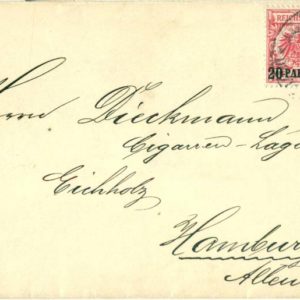 REICHS
20 PAR
Herrn Dieckmann
Cigarren-Lage
Eichholz
Hamburg
Allen